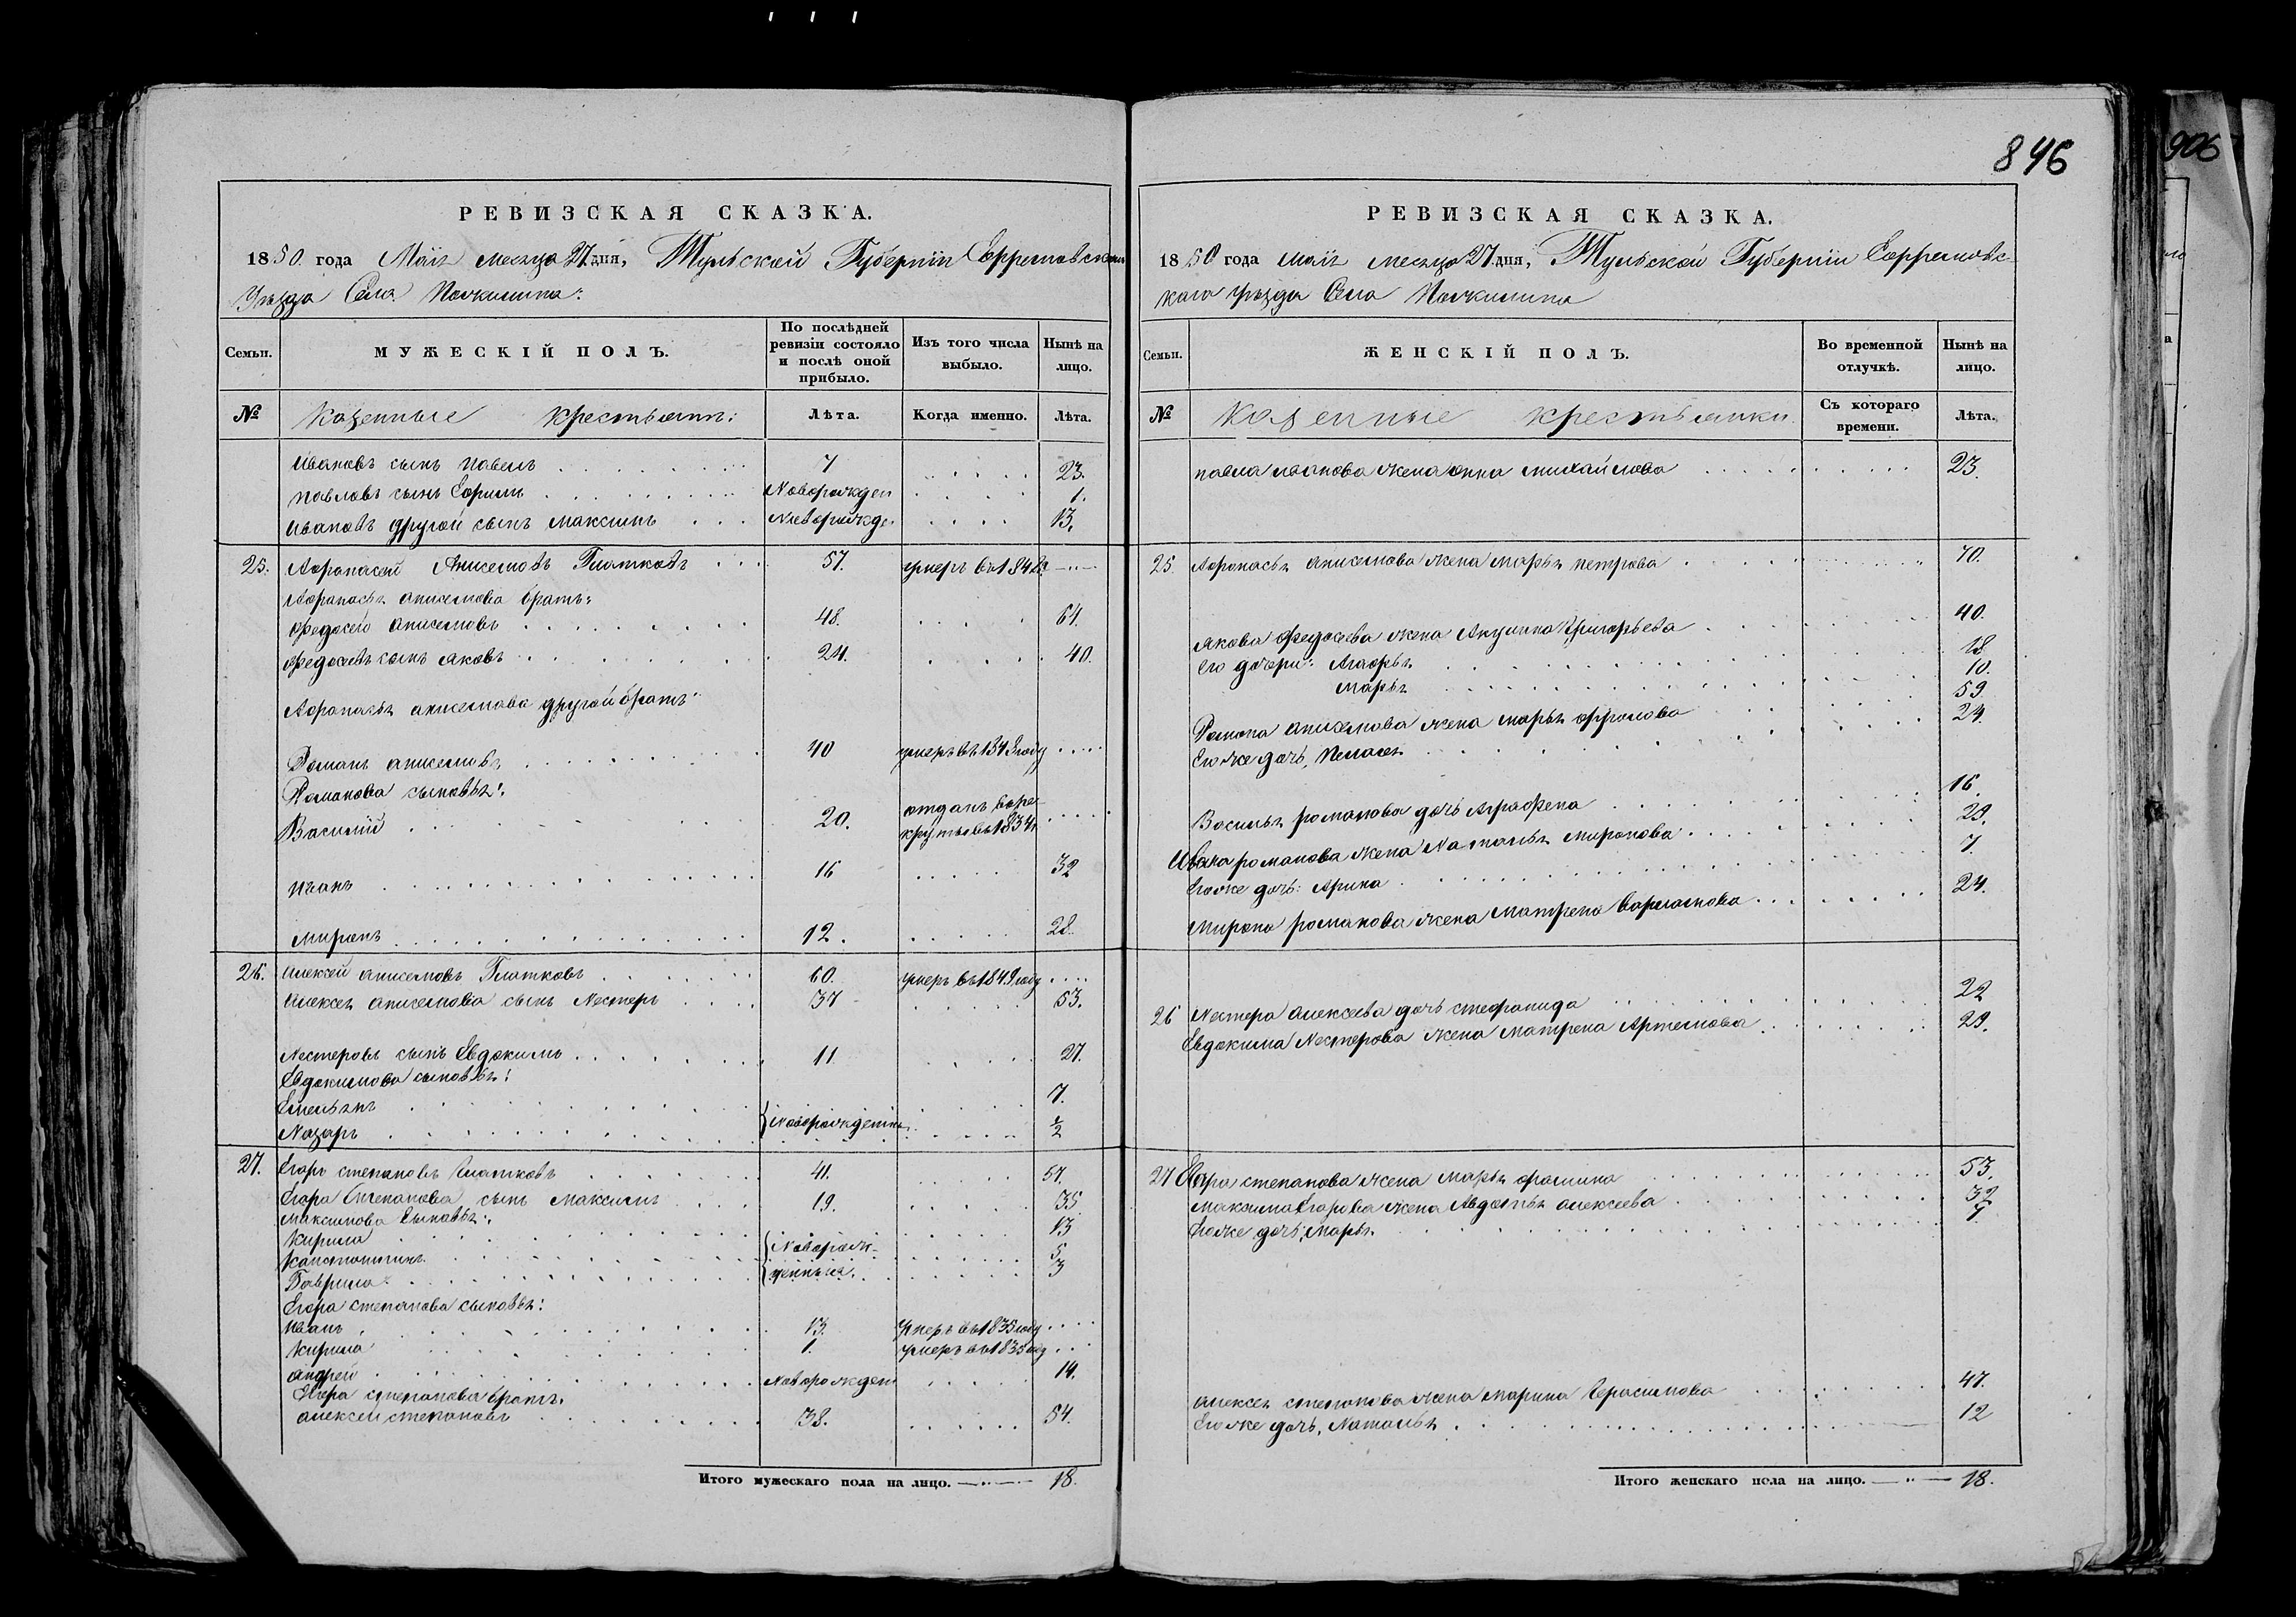 846
906
РЕВИЗСКАЯ СКАЗКА.
1850 года Маія месяца 27 дня, Тульской Губерніи Ефремовскаго
Уѣзда Села
Семьи.
МУЖЕСКІЙ ПОЛЪ.
По послѣдней ревизіи состояло и послѣ оной прибыло.
Изъ того числа выбыло.
Нынѣ на лицо.
№ Казенные крестьяне: Лѣта. Когда именно. Лѣта.
Ивановъ сынъ Павелъ 7 23.
Павловъ сынъ Ефримъ Новорожден 1.
Ивановъ другой сынъ Максимъ Новорожде. 13.
25. Афонасей Анисемовъ Глатковъ 57. умеръ въ 184
Афонасья анисемова братъ:
Федосей анисемовъ 48. 64.
Федосеевъ сынъ Яковъ 24. 40.
Афонасья анисемова другой братъ
Романъ анисемовъ 40 умеръ въ 1843 году
Романова сыновья:
Василій 20. отданъ въ рекруты въ 1834
Иванъ 16 32
Миронъ 12. 28.
26. Алексей анисемовъ Глатковъ 60. умеръ въ 1849 году
Алексея анисемова сынъ Нестеръ 37 53.
Нестеровъ сынъ Евдокимъ 11 27.
Евдокимова сыновья:
Емельянъ 7.
Назаръ Новорожденныя ½
27. Егоръ степановъ Глатковъ 41. 57.
Егора Степанова сынъ Максимъ 19. 35.
Максимова сыновья:
Кирила 13
Константинъ Новорож- 5
Гаврила денныя. 3
Егора степанова сыновья:
Иванъ 13. умеръ въ 1835 году
Кирила 1. умеръ въ 1835 году
Андрей Новорожден 14.
Егора степанова братъ.
алексей степановъ 38. 54.
Итого мужескаго пола на лицо. 18.
РЕВИЗСКАЯ СКАЗКА.
1850 года Маія месяца 27 дня, Тульской Губерніи Ефремовс-
каго уѣзда Села
Семьи.
ЖЕНСКІЙ ПОЛЪ.
Во временной отлучкѣ.
Нынѣ на лицо.
№ Казенные крестьянки Съ котораго времени. Лѣта.
павла иванова жена анна михайлова 23.
25. Афонасья анисемова жена марья петрова 70.
якова Федосеева жена Акулина Григорьева 40.
его дочери: Агафья 18
марья 10.
Романа анисемова жена марья фролова 59
Егоже дочь, Пелагея 24.
Василья романова дочь Аграфена 16.
Ивана романова жена Наталья миронова 29.
Егоже дочь: Арина 7.
Мирона романова жена Матрена Варламова 24.
26 Нестера алексеева дочь степанида 22
Евдокима Нестерова жена матрена Артемова 29.
27 Егора степанова жена марья фомина 53.
максима Егорова жена Авдотья алексеева 32
Егоже дочь, марья 7.
алексея степанова жена марина Герасимова 47.
Егоже дочь, Наталья 12
Итого женскаго пола на лицо. 18.